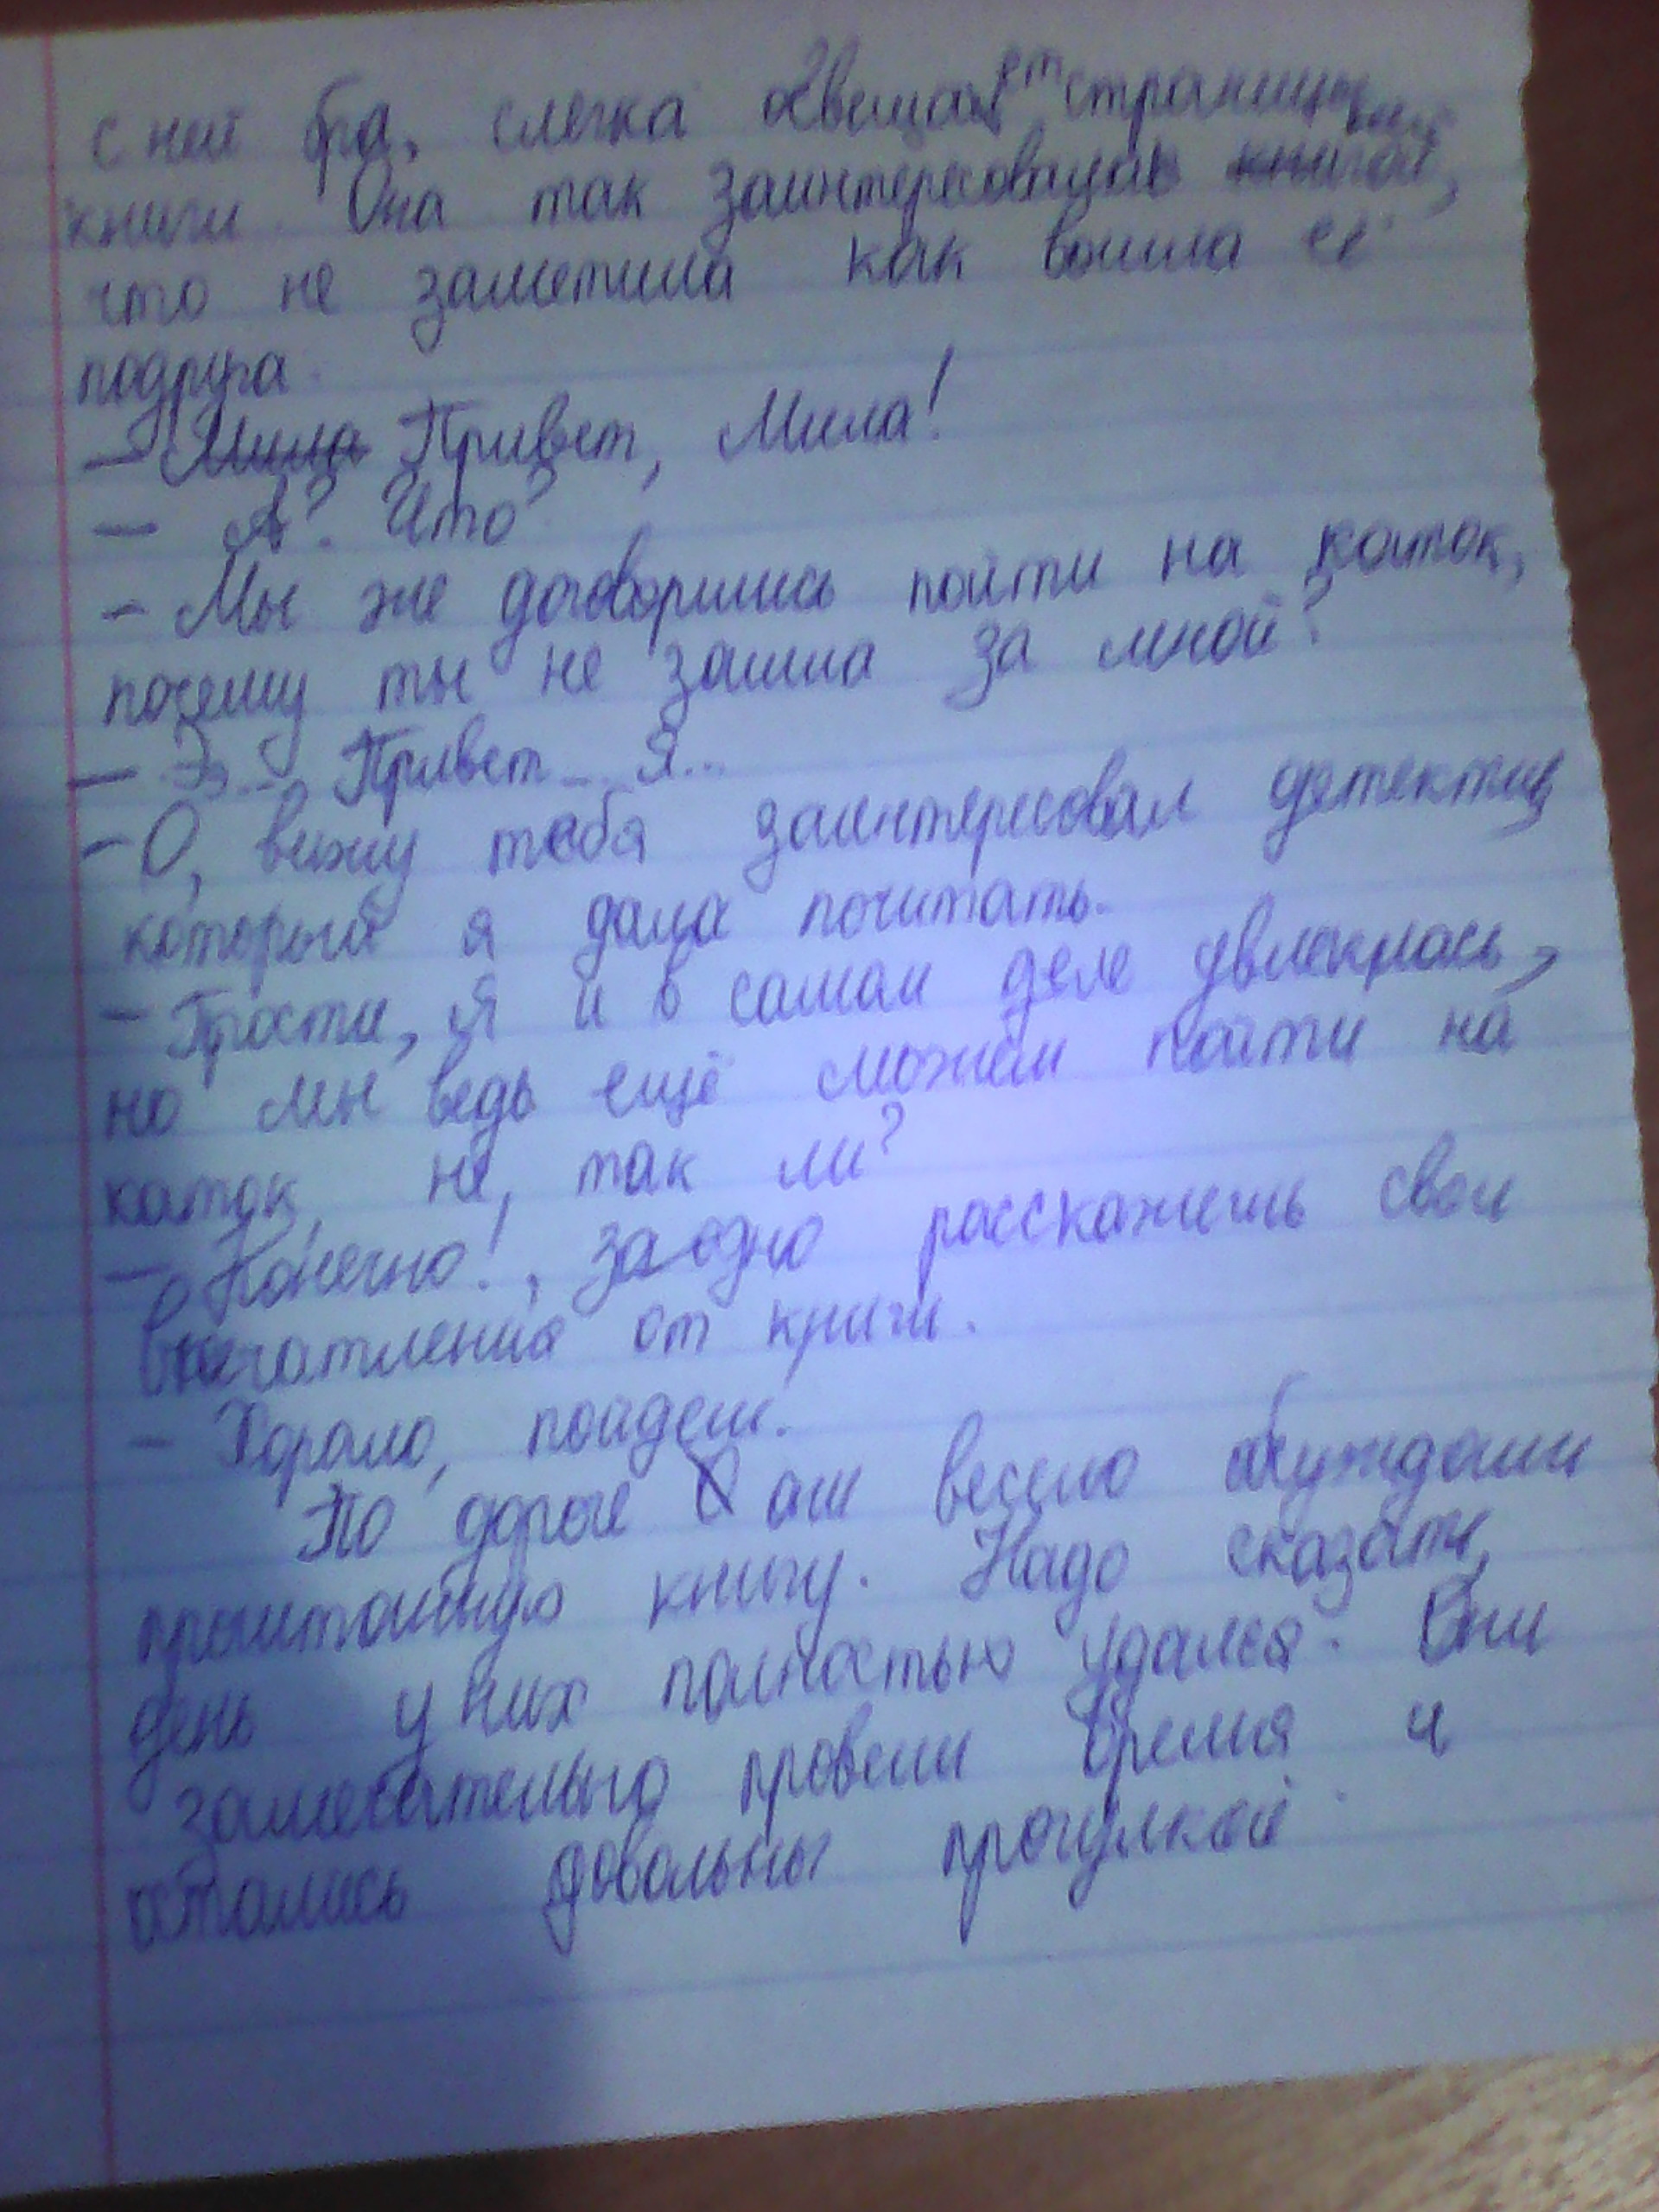 с ней бра, слегка освещает страницы
книги. Она так заинтересовалась книгой,
что не заметила как вошла её
подруга.
– Мила Привет, Мила!
– А? Что?
– Мы же договорились пойти на каток,
почему ты не зашла за мной?
– Ээ... Привет... Я...
– О, вижу тебя заинтересовал детектив
который я дала почитать.
– Прости, я и в самом деле увлеклась,
но мы ведь ещё можем пойти на
каток, не, так ли?
– Конечно!, заодно расскажешь свои
впечатления от книги.
– Хорошо, пойдем.
По дороге они весело обсуждали
прочитанную книгу. Надо сказать,
день у них полностью удался. Они
замечательно провели время и
остались довольны прогулкой.